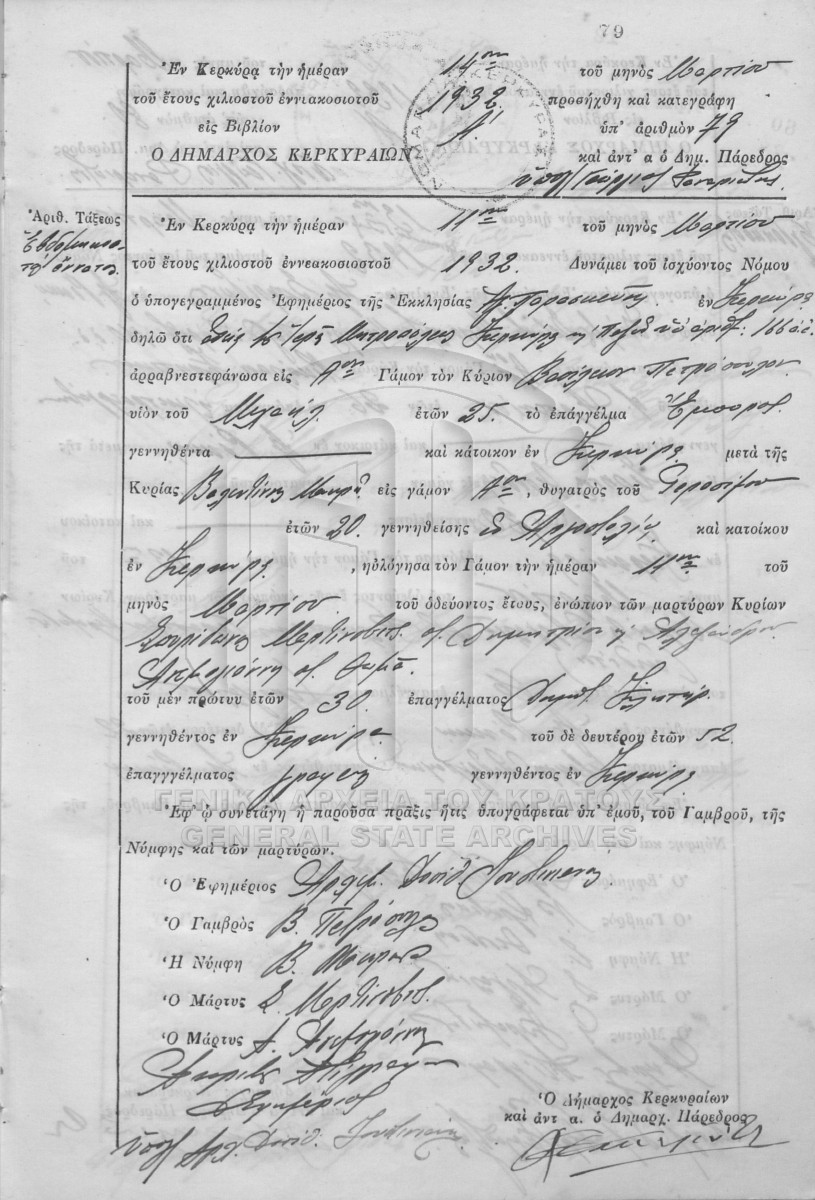 79
Ἐν Κερκύρᾳ τὴν ἡμέραν 14ην τοῦ μηνὸς Μαρτίου
τοῦ ἔτους χιλιοστοῦ ἐννιακοσιοτοῦ 1932 προσήχθη καὶ κατεγράφη
εἰς Βιβλίον Α' ὑπ' ἀριθμὸν 79
Ο ΔΗΜΑΡΧΟΣ ΚΕΡΚΥΡΑΙΩΝ καὶ ἀντ' α ὁ Δημ. Πάρεδρος
Γεώργιος
Ἀριθ. Τάξεως
Ἑβδομηκοστὴ ἐννάτη
Ἐν Κερκύρᾳ τὴν ἡμέραν 11ην τοῦ μηνὸς Μαρτίου
τοῦ ἔτους χιλιοστοῦ ἐννεακοσιοστοῦ 1932. Δυνάμει τοῦ ἰσχύοντος Νόμου
ὁ ὑπογεγραμμένος Ἐφημέριος τῆς Ἐκκλησίας Ἁγ. Παρασκευῆς ἐν Κερκύρᾳ
δηλῶ ὅτι ἀδείᾳ τῆς Ἱερᾶς Μητροπόλεως Κερκύρας ὑπ' ἀριθ. 166
ἀρραβνεστεφάνωσα εἰς Αον Γάμον τὸν Κύριον Βασίλειον Πετρόπουλον
υἱὸν τοῦ Μιχαὴλ ἐτῶν 25. τὸ ἐπάγγέλμα Ἔμπορος
γεννηθέντα καὶ κάτοικον ἐν Κερκύρᾳ μετὰ τῆς
Κυρίας Βαλεντίνης Μακρῆ εἰς γάμον Αον, θυγατρὸς τοῦ Γερασίμου
ἐτῶν 20. γεννηθείσης ἐν Ἀργοστολίῳ καὶ κατοίκου
ἐν Κερκύρᾳ, ηὐλόγησα τὸν Γάμον τὴν ἡμέραν 11ην τοῦ
μηνὸς Μαρτίου. τοῦ ὁδεύοντος ἔτους, ἐνώπιον τῶν μαρτύρων Κυρίων
Σπυρίδωνος Μαρτίνοβιτς Δημητρίου ἢ Ἀλεξάνδρου
Θωμᾶ.
τοῦ μὲν πρώτυυ ἐτῶν 30. ἐπαγγέλματος
γεννηθέντος ἐν Κερκύρᾳ τοῦ δὲ δευτέρου ἐτῶν 52
ἐπαγγγέλματος γραφεὺς γεννηθέντος ἐν Κερκύρᾳ
ΓΕΝΙΚΑ ΑΡΧΕΙΑ ΤΟΥ ΚΡΑΤΟΥΣ
Ἐφ' ᾧ συνετάγη ἡ παροῦσα πρᾶξις ἥτις ὑπογράφεται ὑπ' ἐμοῦ, τοῦ Γαμβροῦ, τῆς
GENERAL STATE ARCHIVES
Νύμφης καὶ τῶν μαρτύρων.
Ὁ Ἐφημέριος Ἀρχιμ. Δαυὶδ
Ὁ Γαμβρὸς Β. Πετρόπουλος
Ἡ Νύμφη Β. Μακρῆ
Ὁ Μάρτυς Σ. Μαρτίνοβιτς
Ὁ Μάρτυς Α.
Ἀκριβὲς Ἀντίγραφον
Ὁ Ἐφημέριος
Ἀρχ. Δαυὶδ
Ὁ Δήμαρχος Κερκυραίων
καὶ ἀντ α. ὁ Δημαρχ. Πάρεδρος